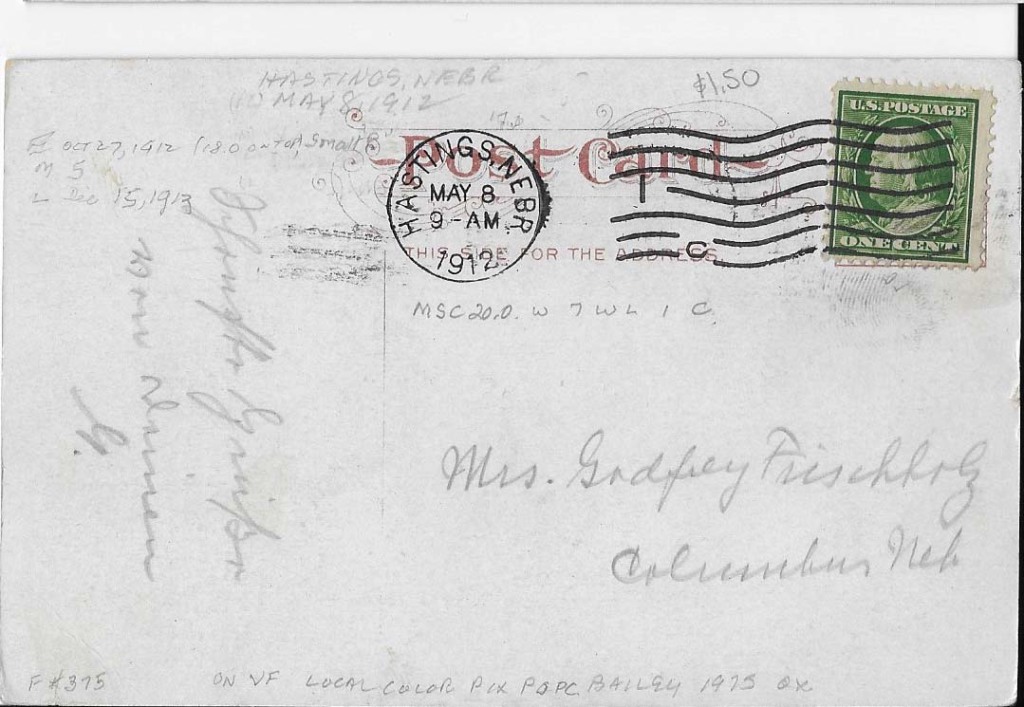 HASTINGS, NEBR
MAY 8, 1912
$1.50
E OCT 27, 1912
M S
L Dec 15, 1913
Post Card
THIS SIDE FOR THE ADDRESS
HASTINGS, NEBR.
MAY 8
9-AM
1912
I
C
U.S. POSTAGE
ONE CENT
MSC 20.0. W 7 WL 1 C
von
G.
Mrs. Godfrey Frischholz
Columbus Neb
F #375
ON VF LOCAL COLOR PIX POPC BAILEY 1975 ex